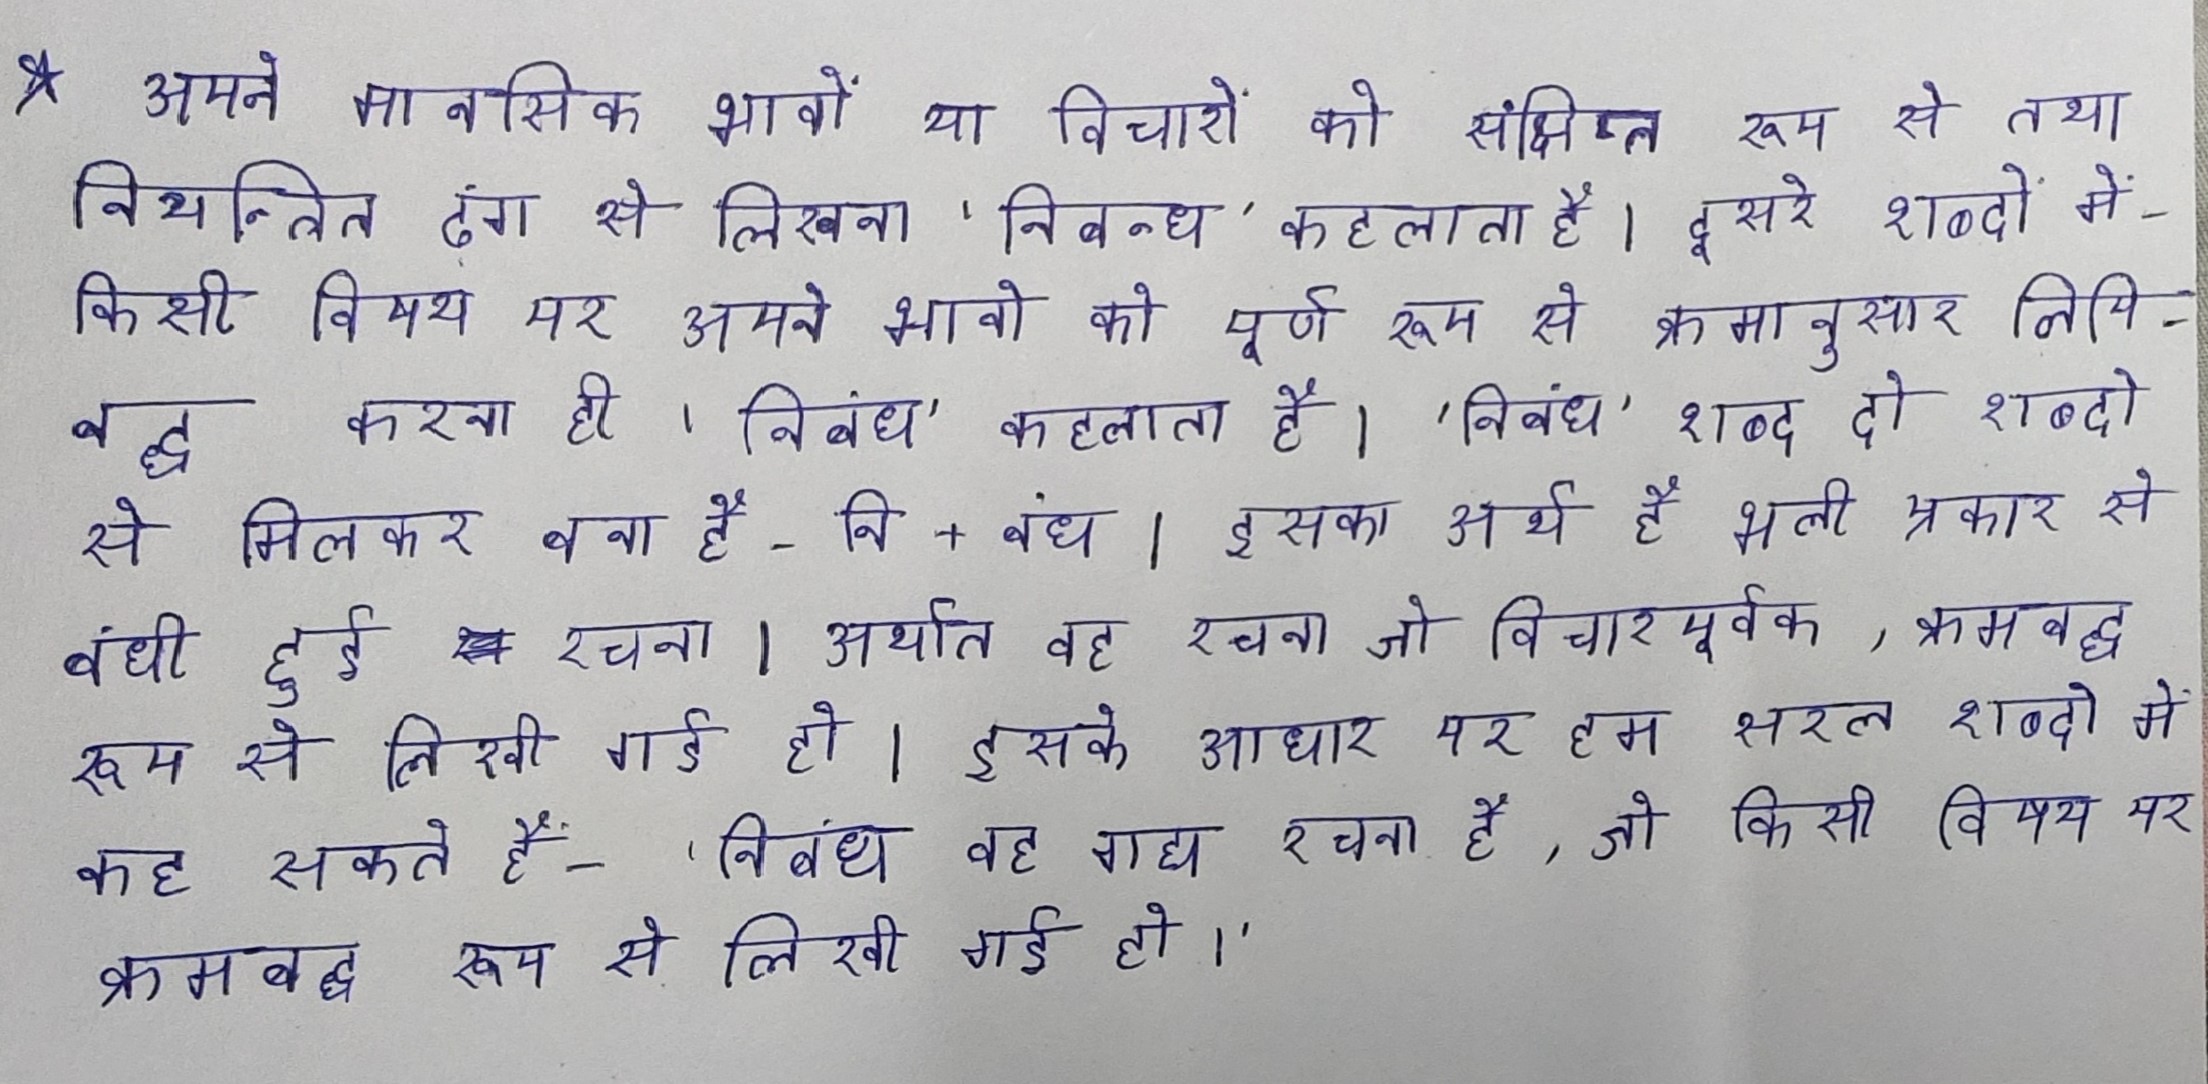 ★ अपने मानसिक भावों या विचारों को संक्षिप्त रूप से तथा
नियन्त्रित ढंग से लिखना 'निबन्ध' कहलाता है। दूसरे शब्दों में-
किसी विषय पर अपने भावो को पूर्ण रूप से क्रमानुसार लिपि-
बद्ध करना ही 'निबंध' कहलाता है। 'निबंध' शब्द दो शब्दो
से मिलकर बना है - नि + बंध। इसका अर्थ है भली प्रकार से
बंधी हुई रचना। अर्थात वह रचना जो विचारपूर्वक, क्रमबद्ध
रूप से लिखी गई हो। इसके आधार पर हम सरल शब्दो में
कह सकते हैं- 'निबंध वह गद्य रचना है, जो किसी विषय पर
क्रमबद्ध रूप से लिखी गई हो।'